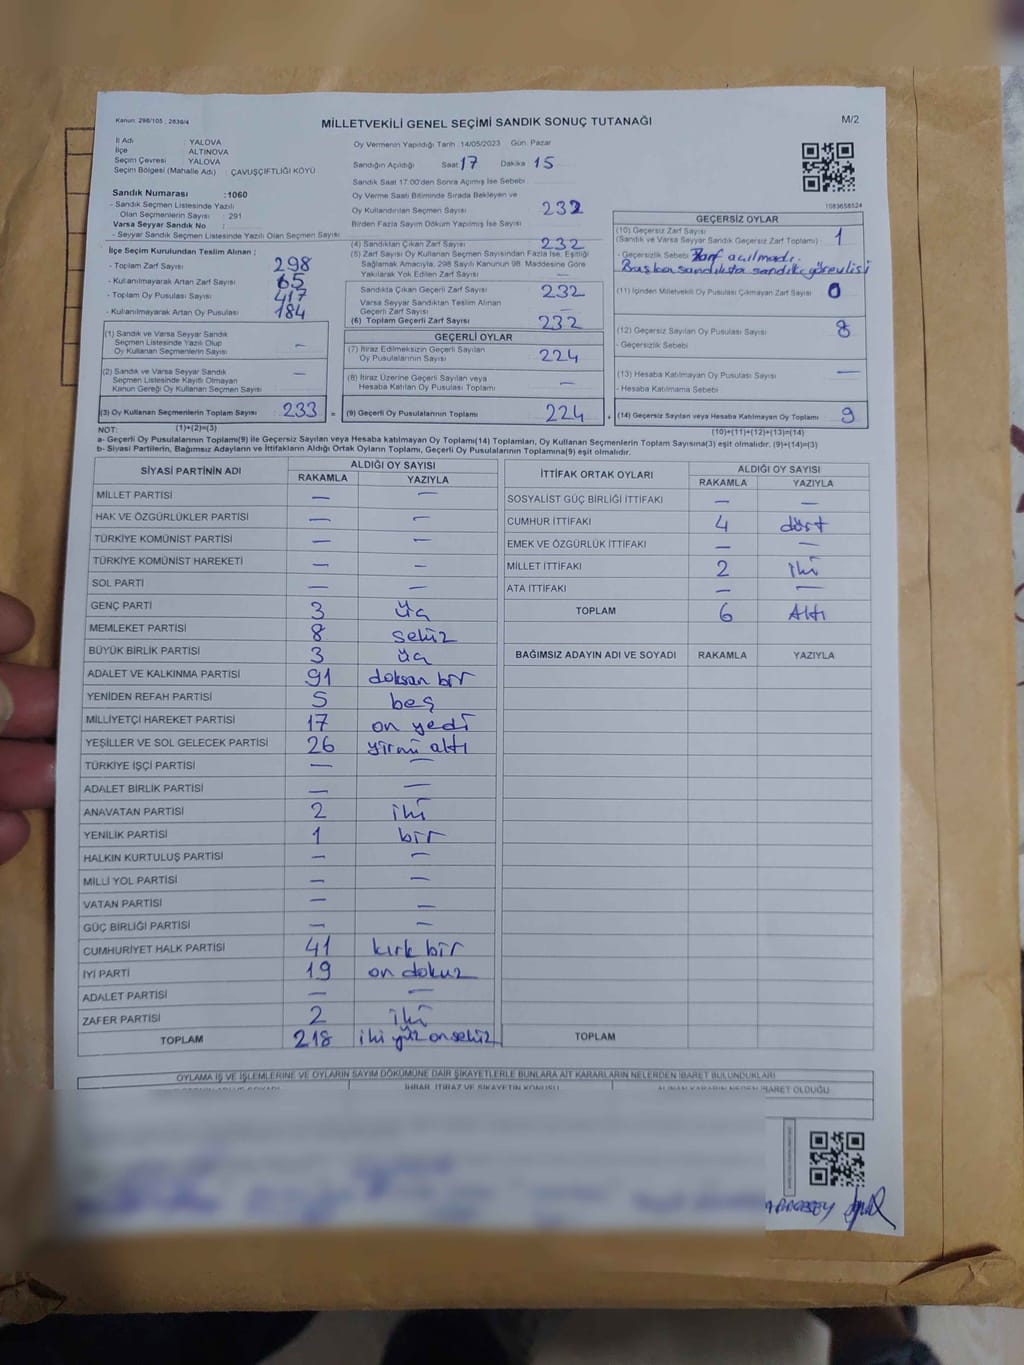 Kanun: 298/105 ; 2839/4
MİLLETVEKİLİ GENEL SEÇİMİ SANDIK SONUÇ TUTANAĞI
M/2
İl Adı : YALOVA
İlçe : ALTINOVA
Seçim Çevresi : YALOVA
Seçim Bölgesi (Mahalle Adı) : ÇAVUŞÇİFTLİĞİ KÖYÜ
Sandık Numarası :1060
- Sandık Seçmen Listesinde Yazılı
Olan Seçmenlerin Sayısı : 291
Varsa Seyyar Sandık No :
- Seyyar Sandık Seçmen Listesinde Yazılı Olan Seçmen Sayısı :
Oy Vermenin Yapıldığı Tarih :14/05/2023 Gün: Pazar
Sandığın Açıldığı Saat: 17 Dakika: 15
Sandık Saat 17.00'den Sonra Açımış İse Sebebi
Oy Verme Saati Bitiminde Sırada Bekleyen ve
Oy Kullandırılan Seçmen Sayısı 232
Birden Fazla Sayım Döküm Yapılmış İse Sayısı
1083658524
İlçe Seçim Kurulundan Teslim Alınan ;
- Toplam Zarf Sayısı : 298
- Kullanılmayarak Artan Zarf Sayısı : 65
- Toplam Oy Pusulası Sayısı : 417
- Kullanılmayarak Artan Oy Pusulası : 184
(1) Sandık ve Varsa Seyyar Sandık
Seçmen Listesinde Yazılı Olup
Oy Kullanan Seçmenlerin Sayısı –
(2) Sandık ve Varsa Seyyar Sandık
Seçmen Listesinde Kayıtlı Olmayan
Kanun Gereği Oy Kullanan Seçmen Sayısı –
(3) Oy Kullanan Seçmenlerin Toplam Sayısı 233 =
(1)+(2)=(3)
(4) Sandıktan Çıkan Zarf Sayısı 232
(5) Zarf Sayısı Oy Kullanan Seçmen Sayısından Fazla İse, Eşitliği
Sağlamak Amacıyla, 298 Sayılı Kanunun 98. Maddesine Göre
Yakılarak Yok Edilen Zarf Sayısı –
Sandıkta Çıkan Geçerli Zarf Sayısı 232
Varsa Seyyar Sandıktan Teslim Alınan
Geçerli Zarf Sayısı –
(6) Toplam Geçerli Zarf Sayısı 232
GEÇERLİ OYLAR
(7) İtiraz Edilmeksizin Geçerli Sayılan
Oy Pusulalarının Sayısı 224
(8) İtiraz Üzerine Geçerli Sayılan veya
Hesaba Katılan Oy Pusulası Toplamı –
(9) Geçerli Oy Pusulalarının Toplamı 224 +
GEÇERSİZ OYLAR
(10) Geçersiz Zarf Sayısı
(Sandık ve Varsa Seyyar Sandık Geçersiz Zarf Toplamı) 1
- Geçersizlik Sebebi Zarf açılmadı.
Başka sandıkta sandık görevlisi
(11) İçinden Milletvekili Oy Pusulası Çıkmayan Zarf Sayısı 0
(12) Geçersiz Sayılan Oy Pusulası Sayısı 8
- Geçersizlik Sebebi
(13) Hesaba Katılmayan Oy Pusulası Sayısı –
- Hesaba Katılmama Sebebi
(14) Geçersiz Sayılan veya Hesaba Katılmayan Oy Toplamı 9
(10)+(11)+(12)+(13)=(14)
NOT:
a- Geçerli Oy Pusulalarının Toplamı(9) ile Geçersiz Sayılan veya Hesaba katılmayan Oy Toplamı(14) Toplamları, Oy Kullanan Seçmenlerin Toplam Sayısına(3) eşit olmalıdır. (9)+(14)=(3)
b- Siyasi Partilerin, Bağımsız Adayların ve İttifakların Aldığı Ortak Oyların Toplamı, Geçerli Oy Pusulalarının Toplamına(9) eşit olmalıdır.
SİYASİ PARTİNİN ADI ALDIĞI OY SAYISI
RAKAMLA YAZIYLA
MİLLET PARTİSİ – –
HAK VE ÖZGÜRLÜKLER PARTİSİ – –
TÜRKİYE KOMÜNİST PARTİSİ – –
TÜRKİYE KOMÜNİST HAREKETİ – –
SOL PARTİ – –
GENÇ PARTİ 3 üç
MEMLEKET PARTİSİ 8 sekiz
BÜYÜK BİRLİK PARTİSİ 3 üç
ADALET VE KALKINMA PARTİSİ 91 doksan bir
YENİDEN REFAH PARTİSİ 5 beş
MİLLİYETÇİ HAREKET PARTİSİ 17 on yedi
YEŞİLLER VE SOL GELECEK PARTİSİ 26 yirmi altı
TÜRKİYE İŞÇİ PARTİSİ – –
ADALET BİRLİK PARTİSİ – –
ANAVATAN PARTİSİ 2 iki
YENİLİK PARTİSİ 1 bir
HALKIN KURTULUŞ PARTİSİ – –
MİLLİ YOL PARTİSİ – –
VATAN PARTİSİ – –
GÜÇ BİRLİĞİ PARTİSİ – –
CUMHURİYET HALK PARTİSİ 41 kırk bir
İYİ PARTİ 19 on dokuz
ADALET PARTİSİ – –
ZAFER PARTİSİ 2 iki
TOPLAM 218 iki yüz onsekiz
İTTİFAK ORTAK OYLARI ALDIĞI OY SAYISI
RAKAMLA YAZIYLA
SOSYALİST GÜÇ BİRLİĞİ İTTİFAKI – –
CUMHUR İTTİFAKI 4 dört
EMEK VE ÖZGÜRLÜK İTTİFAKI – –
MİLLET İTTİFAKI 2 iki
ATA İTTİFAKI – –
TOPLAM 6 Altı
BAĞIMSIZ ADAYIN ADI VE SOYADI RAKAMLA YAZIYLA
TOPLAM
OYLAMA İŞ VE İŞLEMLERİNE VE OYLARIN SAYIM DÖKÜMÜNE DAİR ŞİKAYETLERLE BUNLARA AİT KARARLARIN NELERDEN İBARET BULUNDUKLARI
İHBAR, İTİRAZ VE ŞİKAYETİN KONUSU
ALINAN KARARIN NEDEN İBARET OLDUĞU